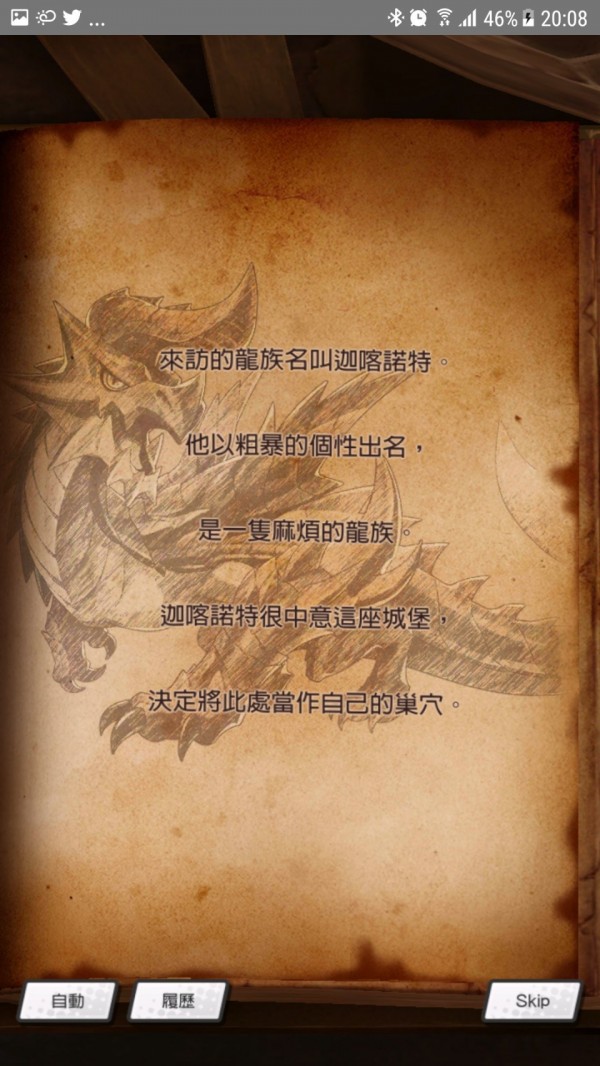 ... 46% 20:08
來訪的龍族名叫迦喀諾特。
他以粗暴的個性出名，
是一隻麻煩的龍族。
迦喀諾特很中意這座城堡，
決定將此處當作自己的巢穴。
自動 履歷 Skip